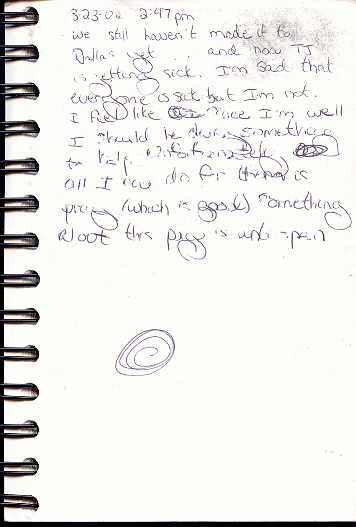 3-23-02 2:47pm
we still haven't made it to
Dallas yet ... and now TJ
is getting sick. I'm sad that
everyone is sick but I'm not.
I feel like since I'm well
I should be doing something
to help. Unfortunately
all I can do for them is
pray (which is good) something
about this page is anti-pen